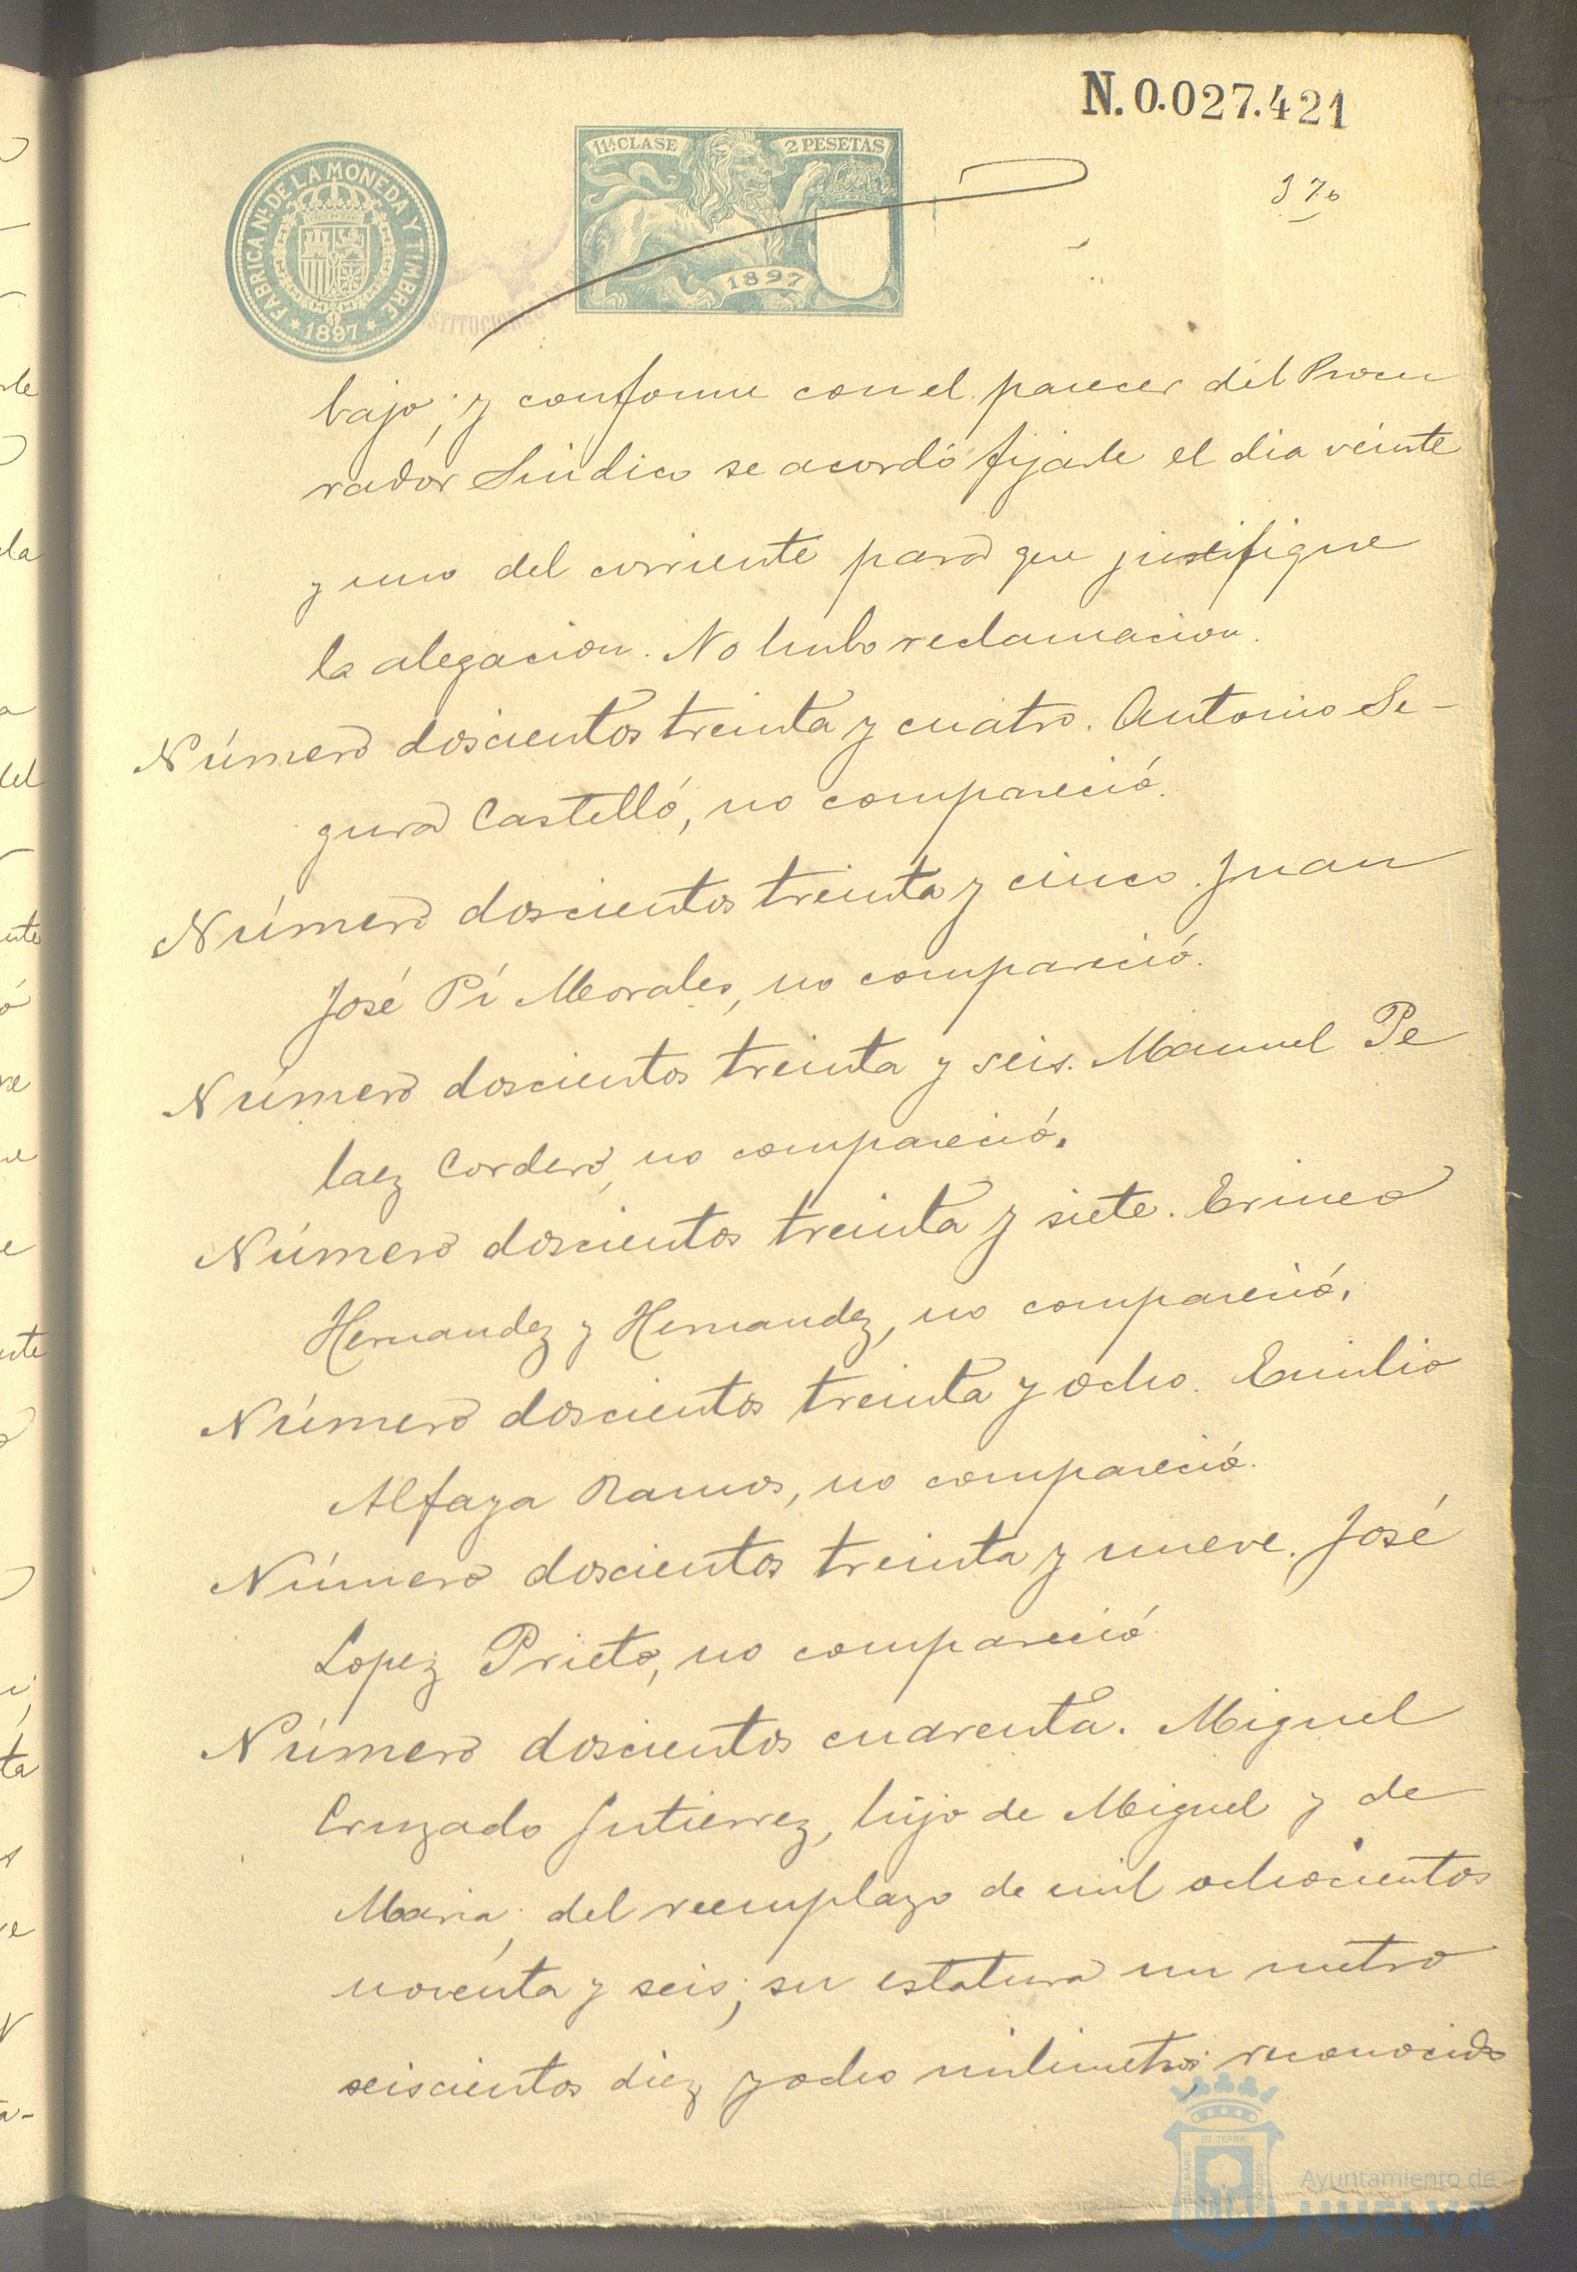 N.0.027.421
11ª CLASE 2 PESETAS
FABRICA Nª DE LA MONEDA Y TIMBRE
1897
1897
bajo; y conforme con el parecer del Procu
rador Sindico se acordó fijarle el dia veinte
y uno del corriente para que justifique
la alegacion. No hubo reclamacion.
Número doscientos treinta y cuatro. Antonio Se-
gura Castelló, no compareció.
Número doscientos treinta y cinco. Juan
José Pí Morales, no compareció.
Número doscientos treinta y seis. Manuel Pe
laez Cordero, no compareció.
Número doscientos treinta y siete. Erineo
Hernandez y Hernandez, no compareció.
Número doscientos treinta y ocho. Emilio
Alfaya Ramos, no compareció.
Número doscientos treinta y nueve. José
Lopez Prieto, no compareció
Número doscientos cuarenta. Miguel
Cruzado Gutierrez, hijo de Miguel y de
Maria, del reemplazo de mil ochocientos
noventa y seis; su estatura un metro
seiscientos diez y ocho milimetros; reconocido
Ayuntamiento de
HUELVA